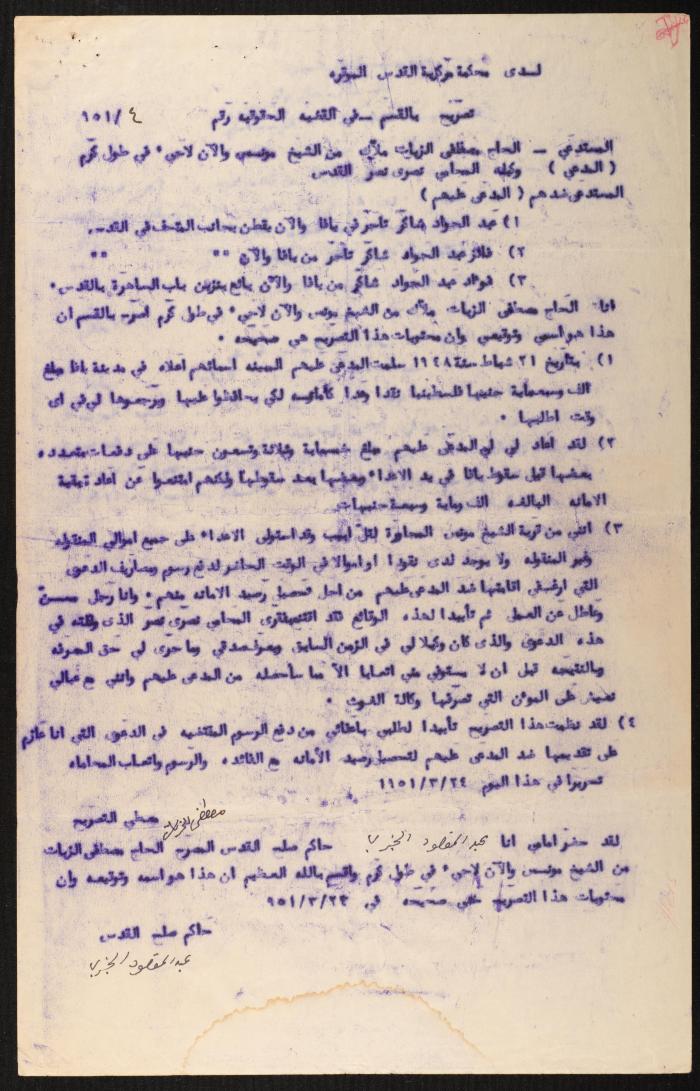 لسدى محكمة مركزية القدس الموقره
تصريح بالقسم ــ في القضيه الحقوقيه رقم ٤ /١٥١
المستدعي ــ الحاج مصطفى الزيات ملاك من الشيخ مونس والآن لاجيء في طول كرم
( المدعي ) وكيله المحامي نصري نصر القدس
المستدعى ضدهم ( المدعى عليهم )
١) عبد الجواد شاكر تاجر في يافا والآن يقطن بجانب المتحف في القدس.
٢) فائز عبد الجواد شاكر تاجر من يافا والآن " "
٣) فواد عبد الجواد شاكر من يافا والآن بائع بنزين باب الساهرة بالقدس.
انا الحاج مصطفى الزيات ملاك من الشيخ مونس والآن لاجيء في طول كرم اصرح بالقسم ان
هذا هو اسمي وتوقيعي وان محتويات هذا التصريح هي صحيحه .
١) بتاريخ ٢١ شباط سنة ١٩٤٨ سلمت المدعى عليهم المبينه اسمائهم اعلاه في مدينة يافا مبلغ
الف وسبعماية جنيها فلسطينيا نقدا وعدا كأمانه لكي يحافظوا عليها ويرجعوها لي في اى
وقت اطلبها .
٢) لقد اعاد لي المدعى عليهم مبلغ خمسماية وثلاثة وتسعون جنيها على دفعات متعدده
بعضها قبل سقوط يافا في يد الاعداء وبعضها بعد سقوطها ولكنهم امتنعوا عن اعادة بقية
الامانه البالغه الف وماية وسبعة جنيهات
٣) انني من قرية الشيخ مونس المجاورة لتل ابيب وقد استولى الاعداء على جميع اموالي المنقوله
وغير المنقوله ولا يوجد لدى نقودا او اموالا في الوقت الحاضر لدفع رسوم ومصاريف الدعوى
التي ارغب في اقامتها ضد المدعى عليهم من اجل تحصيل رصيد الامانه منهم . وانا رجل مسن
وعاطل عن العمل ثم تأييدا لهذه الوقائع فقد المحامي نصري نصر الذى وكلته في
هذه الدعوى والذى كان وكيلا لي في الزمن السابق ويعرف صدقي وما جرى لي حق المعرفه
وبالنتيجه قبل ان لا يستوفي مني اتعابا الا مما سأحصله من المدعى عليهم وانني مع عيالي
نعيش على المون التي تصرفها وكالة الغوث .
٤) لقد نظمت هذا التصريح تأييدا لطلبي باعفائي من دفع الرسوم المقتضيه في الدعوى التي انا عازم
على تقديمها ضد المدعى عليهم لتحصيل رصيد الأمانه مع الفائده والرسوم واتعاب المحاماه
تحريرا في هذا اليوم ١٩٥١/٣/٢٤
معطي التصريح
لقد حضر امامي انا عبد المقصود الخيري حاكم صلح القدس المصرح الحاج مصطفى الزيات
من الشيخ مونس والآن لاجيء في طول كرم واقسم بالله العظيم ان هذا هو اسمه وتوقيعه وان
محتويات هذا التصريح هي صحيحه في ٩٥١/٣/٢٤
حاكم صلح القدس
عبد المقصود الخيري